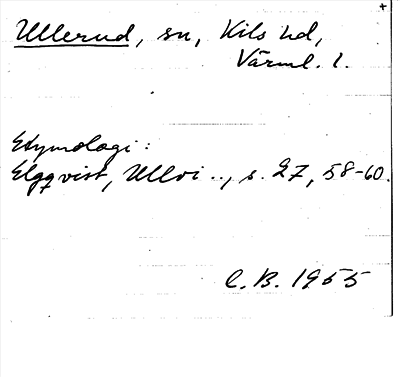 Ullerud, sn, Kils hd,
Värml. l.
Etymologi:
Elgqvist, Ullvi.., s. 27, 58-60.
C.B. 1955